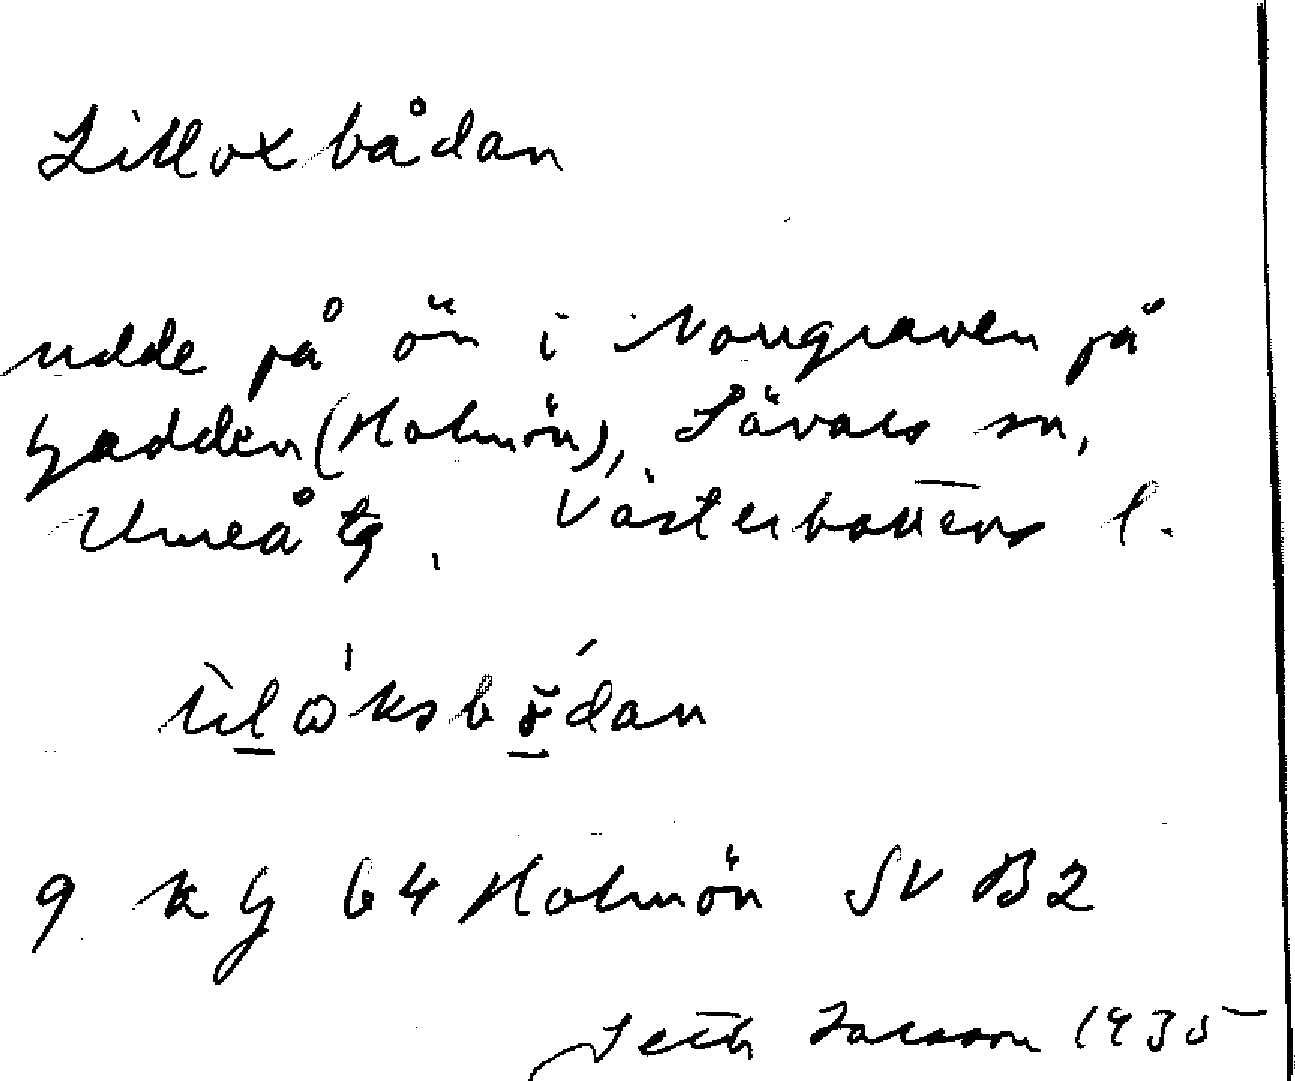 Lilloxbådan
udde på ön i Norrgraven på
Gadden (Holmön), Sävars sn,
Umeå tg, Västerbottens l.
9 k G 64 Holmön SV B2
Seth Larsson 1935